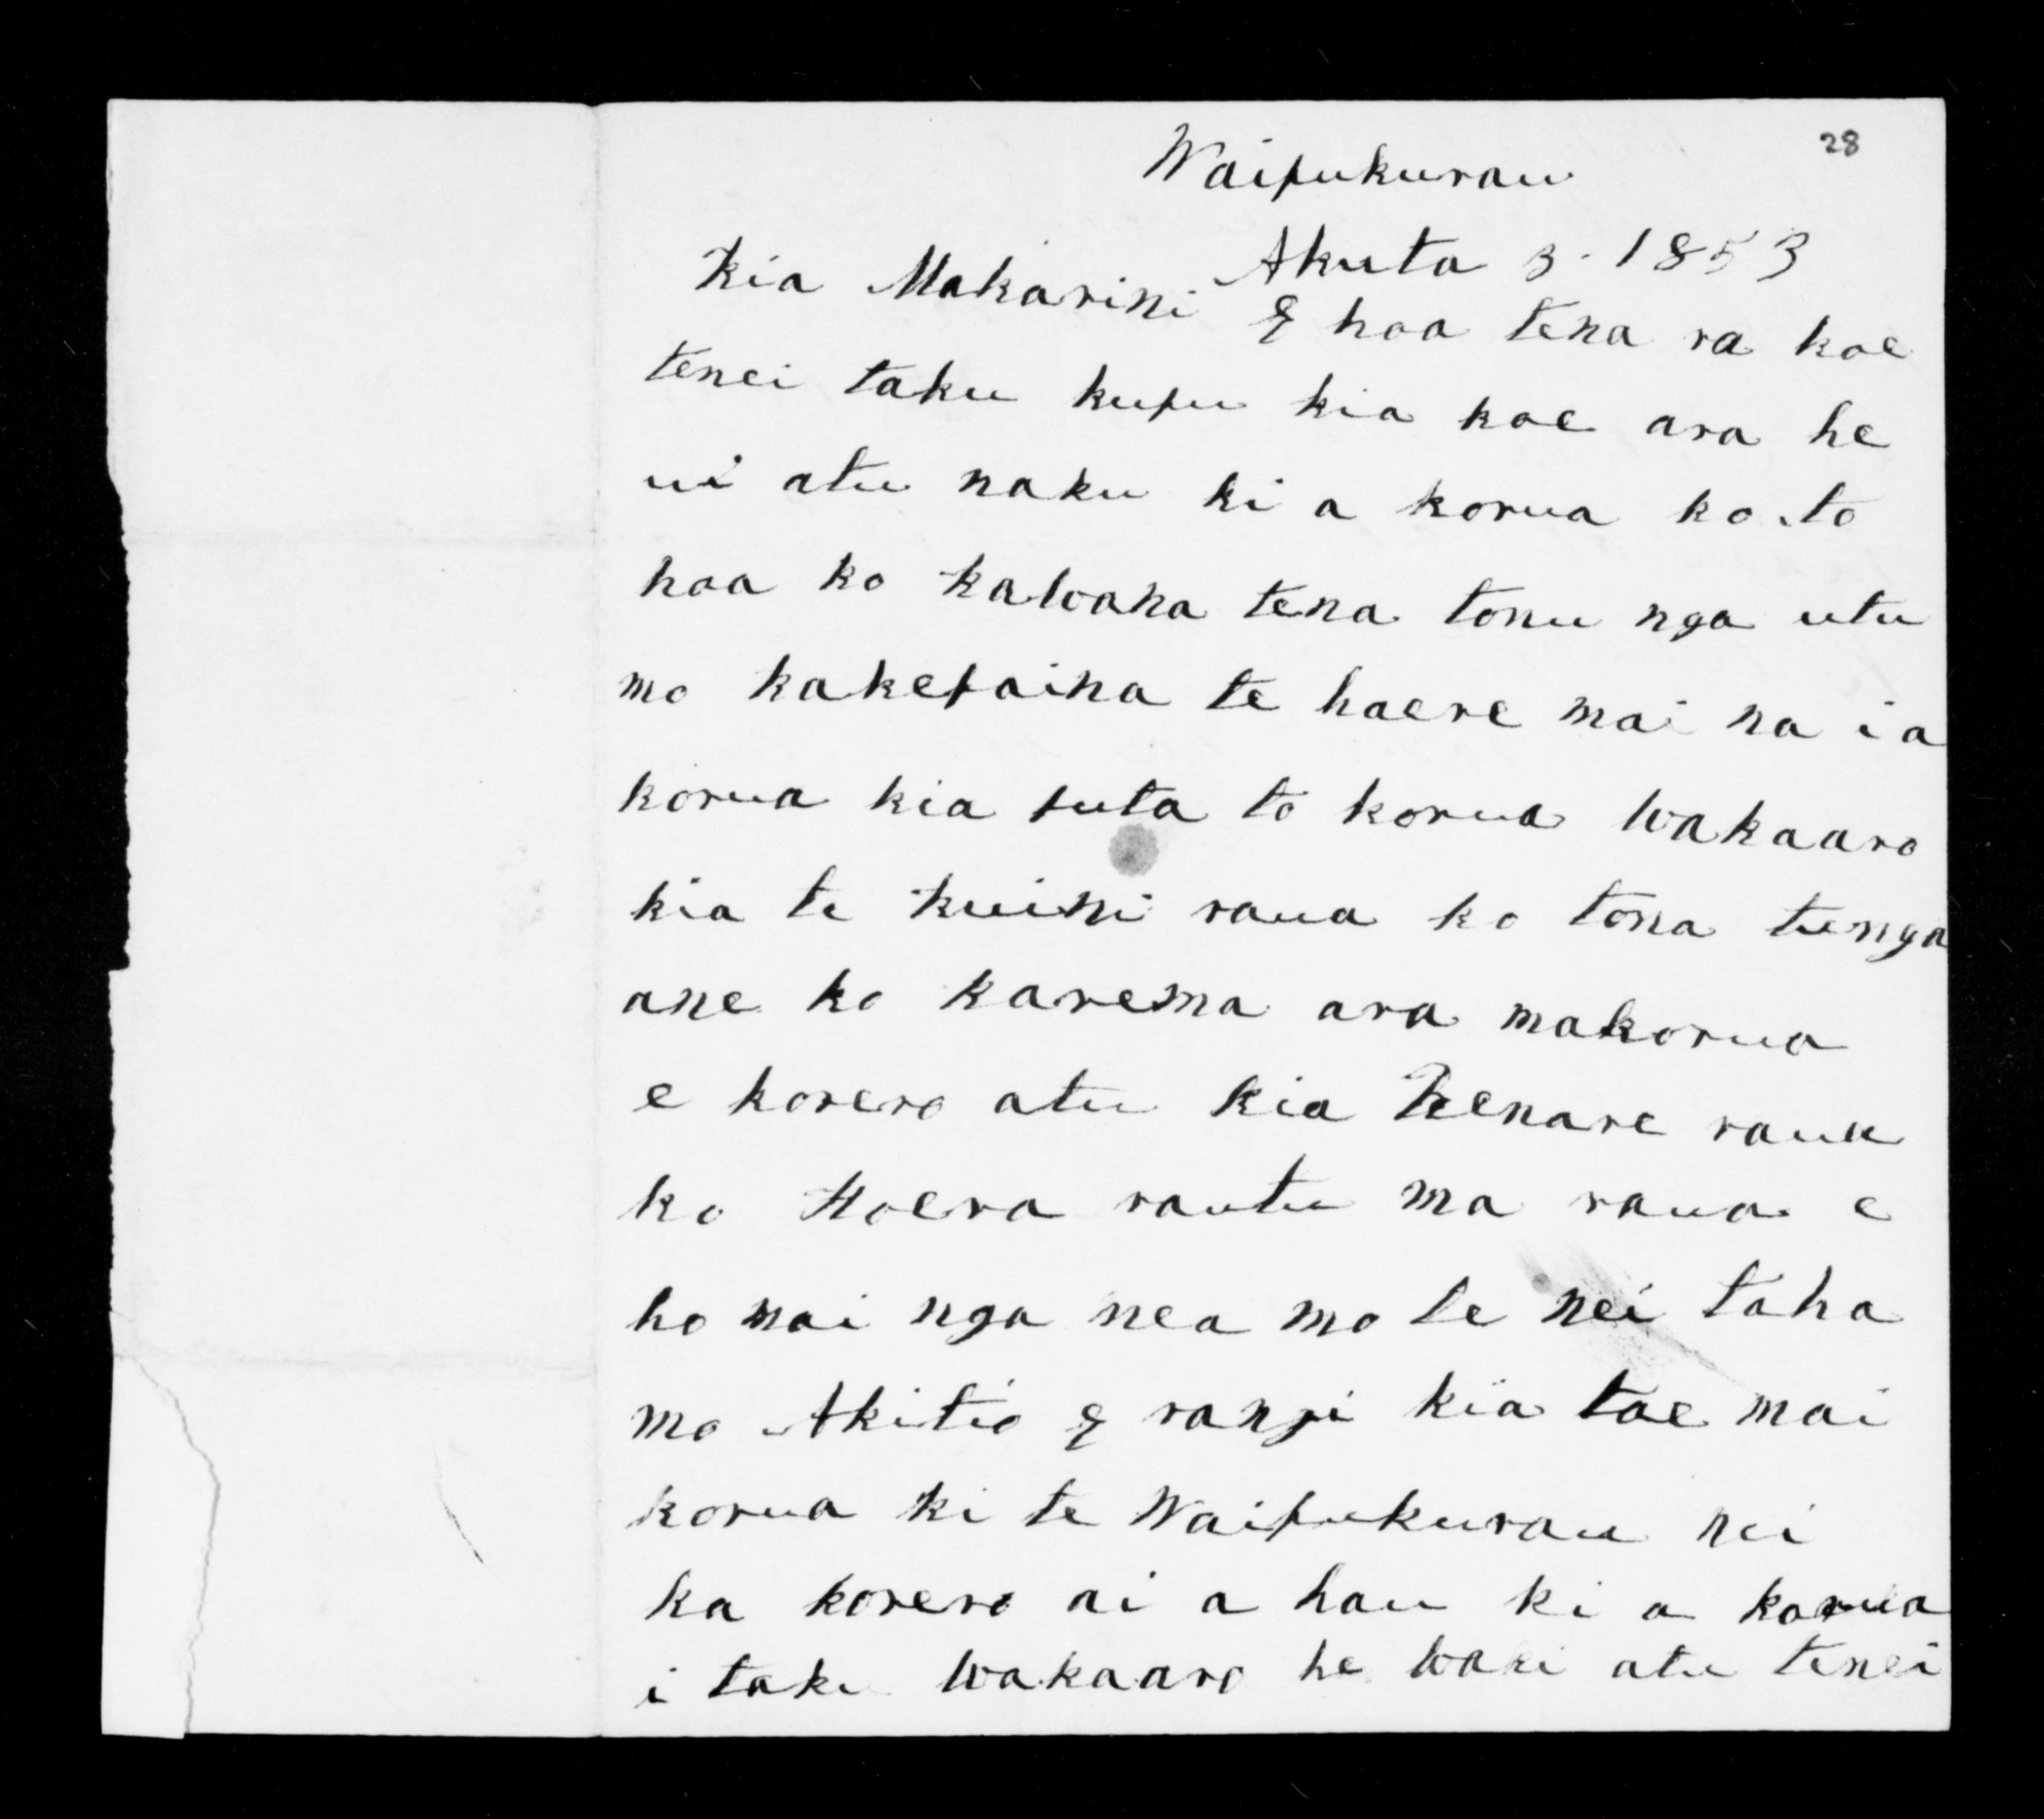 28
Waipukurau
Akuta 3. 1853
Kia Makarini E hoa tena ra koe
tenei taku kupu kia koe ara he
ui atu naku ki a korua ko to
hoa ko kawana tena tonu nga utu
mo kakepaina te haere mai na i a
korua kia puta to korua wakaaro
kia te kuini raua ko tona tunga
ane ko karema ara makorua
e korero atu kia Henare raua
ko Hoera rautu ma raua e
ho mai nga mea mo te nei taha
mo Akitio E rangi kia tae mai
korua ki te Waipukurau nei
ka korero ai a hau ki a korua
i taku wakaaro he waki atu tenei